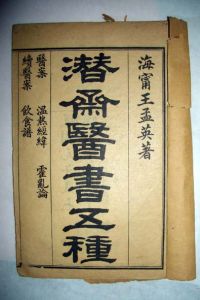 海甯王孟英著
潜齋醫書五種
醫案 溫熱經緯 霍亂論
續醫案 飲食譜